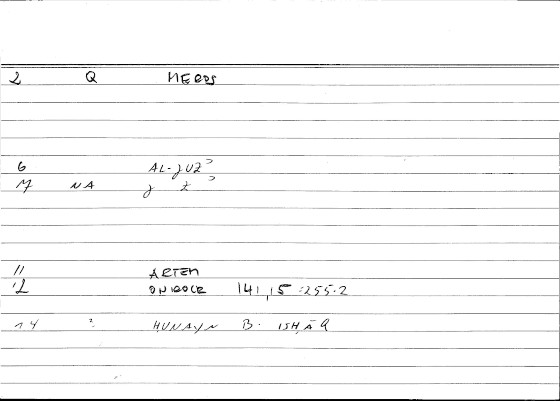 2 Q
6 AL-JUZʾ
M NA J Z ʾ
11 ARTEM
12 ONIROCR 141,15 :255.2
14 : HUNAYN B. ISHĀQ